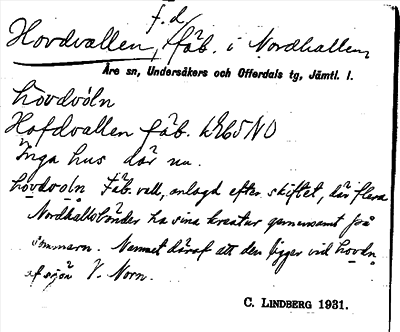 f. d.
Hovdvallen, fäb. i Nordhallen,
Åre sn, Undersåkers och Offerdals tg, Jämtl. l.
hòvdvóln
Hofdvallen fäb. WEk5NO
Inga hus där nu.
hòvdvoln Fäb. vall, anlagd efter skiftet, där flera
Nordhallsbönder ha sina kreatur gemensamt på
sommarn. Namnet däraf att den ligger vid hòvdn
af sjön V. Norn.
C. LINDBERG 1931.